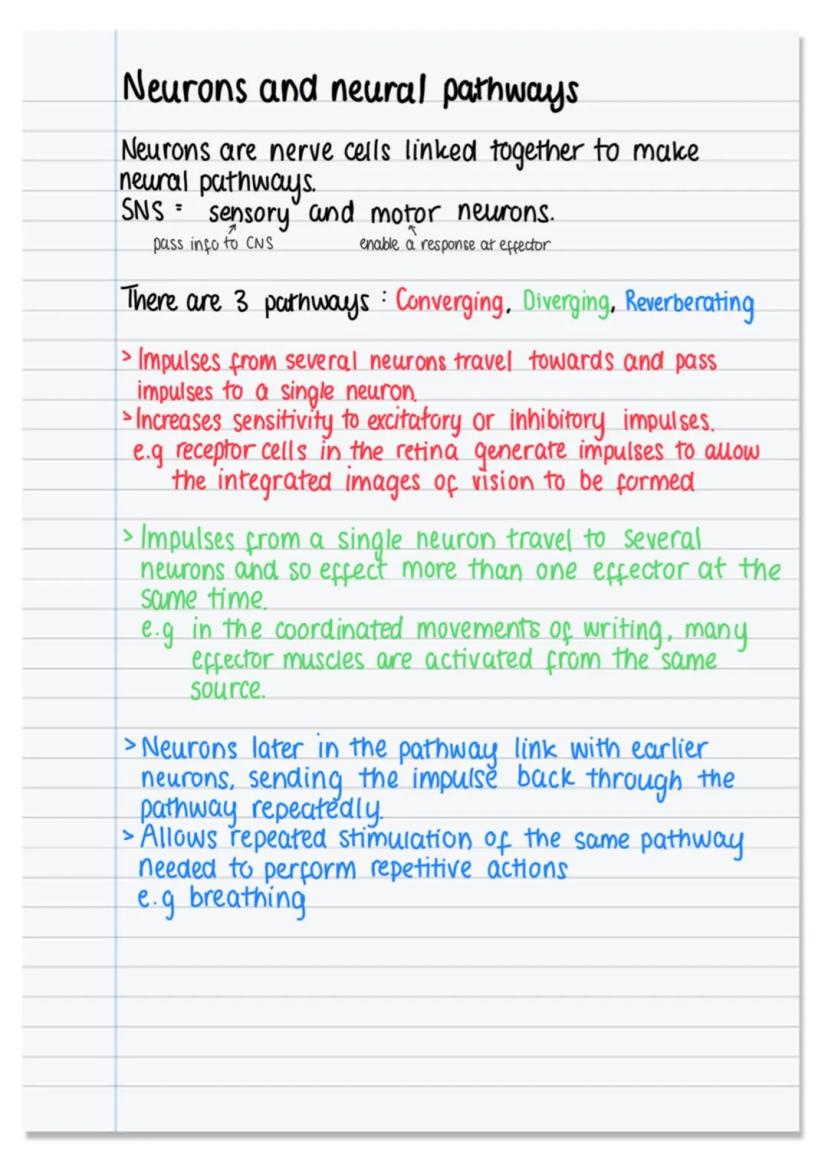 Neurons and neural pathways
Neurons are nerve cells linked together to make
neural pathways.
SNS = sensory and motor neurons.
pass info to CNS enable a response at effector
There are 3 pathways : Converging, Diverging, Reverberating
> Impulses from several neurons travel towards and pass
impulses to a single neuron.
> Increases sensitivity to excitatory or inhibitory impulses.
e.g receptor cells in the retina generate impulses to allow
the integrated images of vision to be formed
> Impulses from a single neuron travel to several
neurons and so effect more than one effector at the
same time.
e.g in the coordinated movements of writing, many
effector muscles are activated from the same
source.
> Neurons later in the pathway link with earlier
neurons, sending the impulse back through the
pathway repeatedly.
> Allows repeated stimulation of the same pathway
needed to perform repetitive actions
e.g breathing